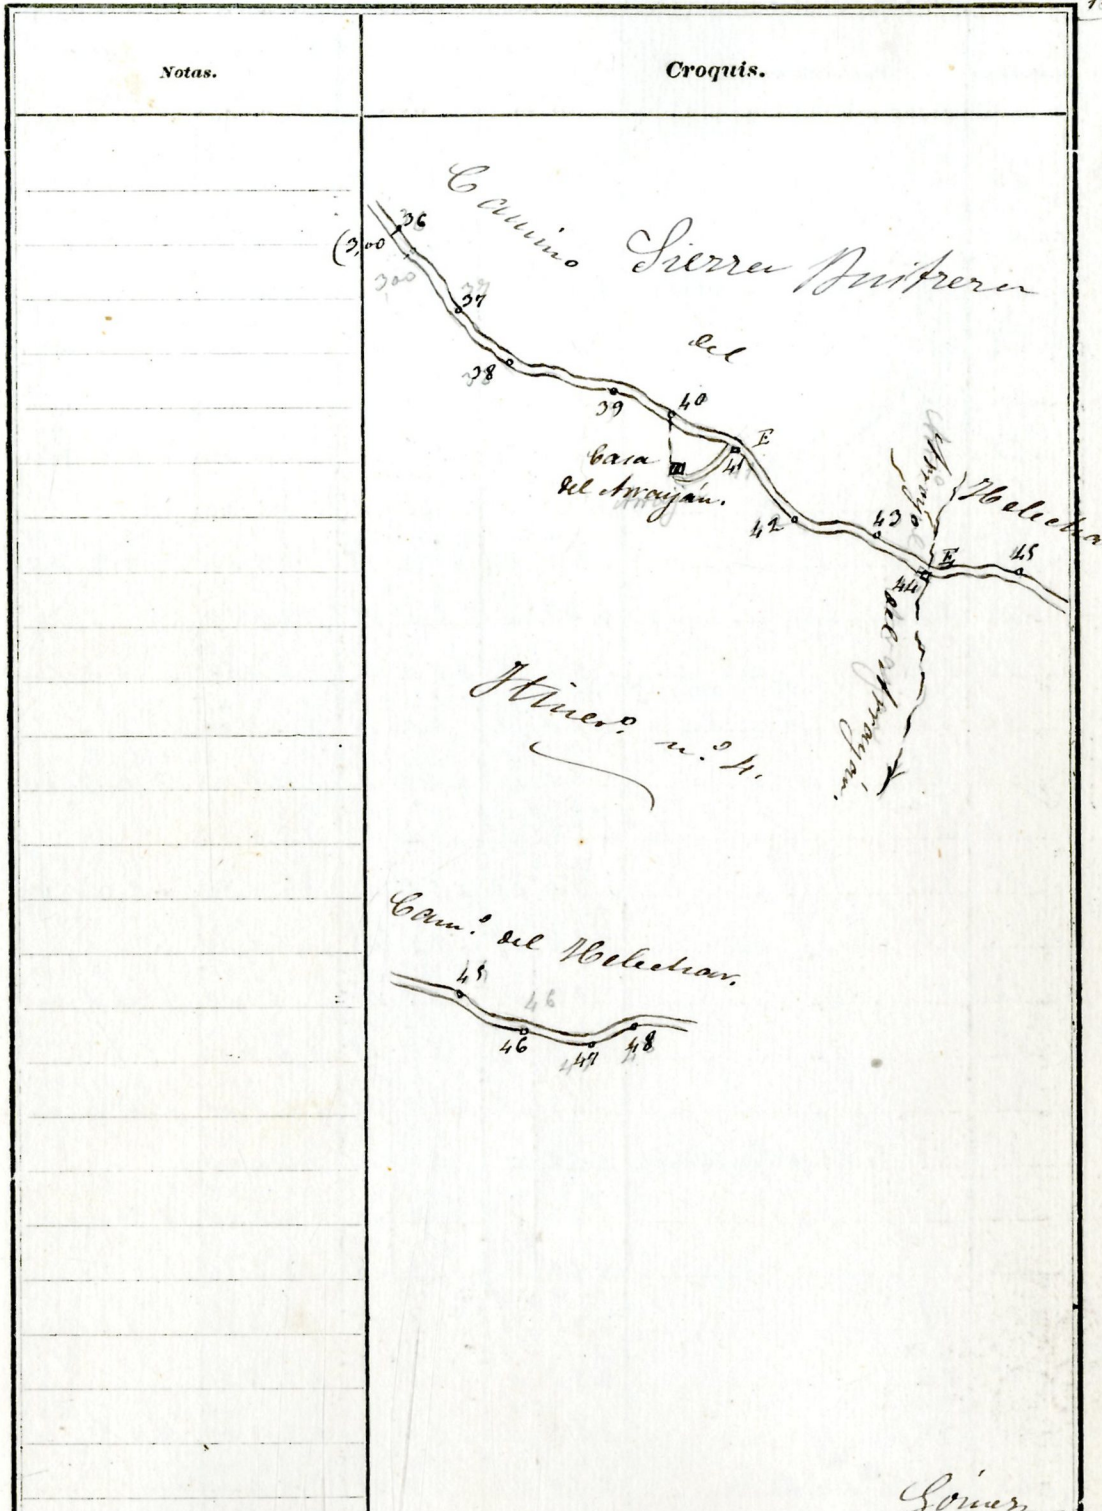 Notas.
Croquis.
Camino
Sierra Buitrera
36
(3,00
3,00
37
37
del
38
39
40
E
41
Casa
del Arrayán.
42
43
Arroyo
Helechar
E
45
44
del Arrayán.
Itiner.º n.º 4.
Cam.º del Helechar.
45
46
46
47
48
Gómez